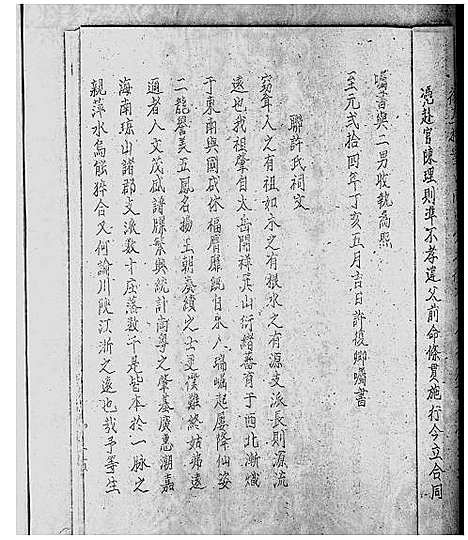 憑赴官陳理則準不孝違父前命條貫施行今立合同
囑書與二男收執為照
至元弍拾四年丁亥五月吉日許俊卿囑書
聯許氏祠文
竊聞人之有祖如木之有根水之有源支派長則源流
遠也我祖肇自太岳開祥箕山衍緒蕃育于西北漸熾
于東南與國咸休福膺靡既自永人瑞崛起屢降仙姿
二龍譽美五鳳名揚王朝之士更僕難終姑疏遠
適者人文茂盛譜牒繁興統計南粵之肇基廣惠潮嘉
海南瓊山諸郡支派數十庄落數千是皆本於一脈之
親萍水烏能猝合又何論川陝江浙之遠也哉予等生